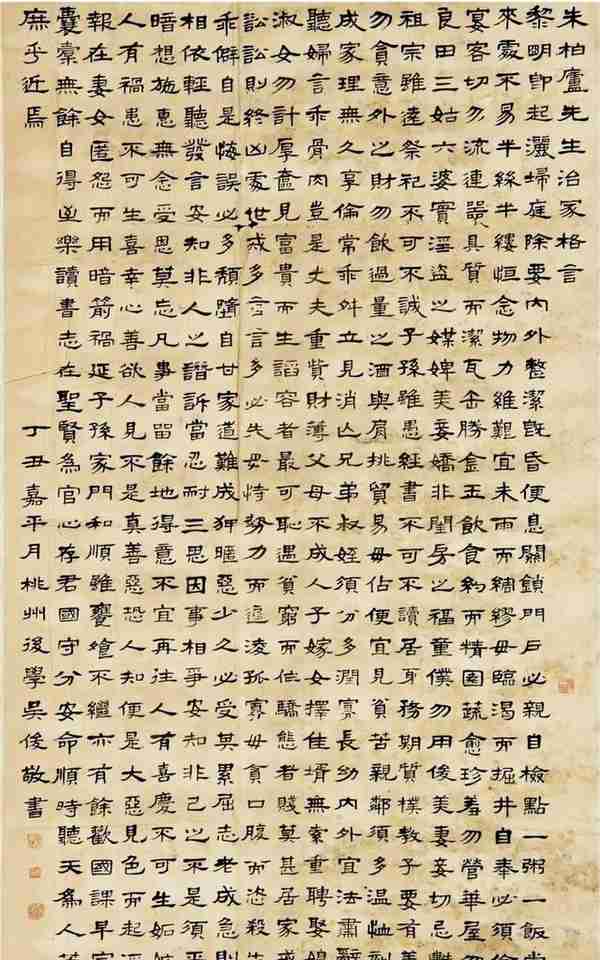 朱柏廬先生治家格言
黎明即起灑埽庭除要內外整潔既昏便息關鎖門戶必親自檢點一粥一飯當
來處不易半絲半縷恒念物力維艱宜未雨而綢繆毋臨渴而掘井自奉必須儉
宴客切勿流連器具質而潔瓦缶勝金玉飲食約而精園蔬愈珍羞勿營華屋勿
良田三姑六婆實淫盜之媒婢美妾嬌非閨房之福童僕勿用俊美妻妾切忌艷
祖宗雖遠祭祀不可不誠子孫雖愚經書不可不讀居身務期質樸教子要有義
勿貪意外之財勿飲過量之酒與肩挑貿易毋佔便宜見貧苦親鄰須多溫恤刻
成家理無久享倫常乖舛立見消亡兄弟叔姪須分多潤寡長幼內外宜法肅辭
聽婦言乖骨肉豈是丈夫重貲財薄父母不成人子嫁女擇佳婿無索重聘娶媳
淑女勿計厚奩見富貴而生諂容者最可恥遇貧窮而作驕態者賤莫甚居家戒
訟訟則終凶處世戒多言言多必失毋恃勢力而逼凌孤寡毋貪口腹而恣殺
乖僻自是悔誤必多頹隳自甘家道難成狎暱惡少久必受其累屈志老成急則
相依輕聽發言安知非人之譖訴當忍耐三思因事相爭安知非己之不是須平
暗想施惠無念受恩莫忘凡事當留餘地得意不宜再往人有喜慶不可生妒
人有禍患不可生喜幸心善欲人見不是真善惡恐人知便是大惡見色而起淫
報在妻女匿怨而用暗箭禍延子孫家門和順雖饔飧不繼亦有餘歡國課早完
囊橐無餘自得至樂讀書志在聖賢為官心存君國守分安命順時聽天為人若
庶乎近焉
丁丑嘉平月桃州後學吳俊敬書